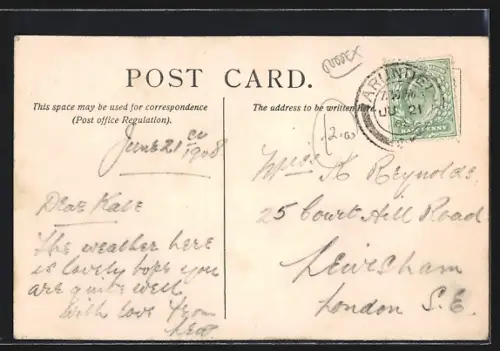 SUSSEX
POST CARD.
This space may be used for correspondence
(Post office Regulation).
The address to be written here.
ARUNDEL
JU 21
HALFPENNY
12.00
June 21
1908
Dear Kate
The weather here
is lovely hope you
are quite well
with love from
Miss K Reynolds,
25 Court Hill Road
Lewisham
London S.E.